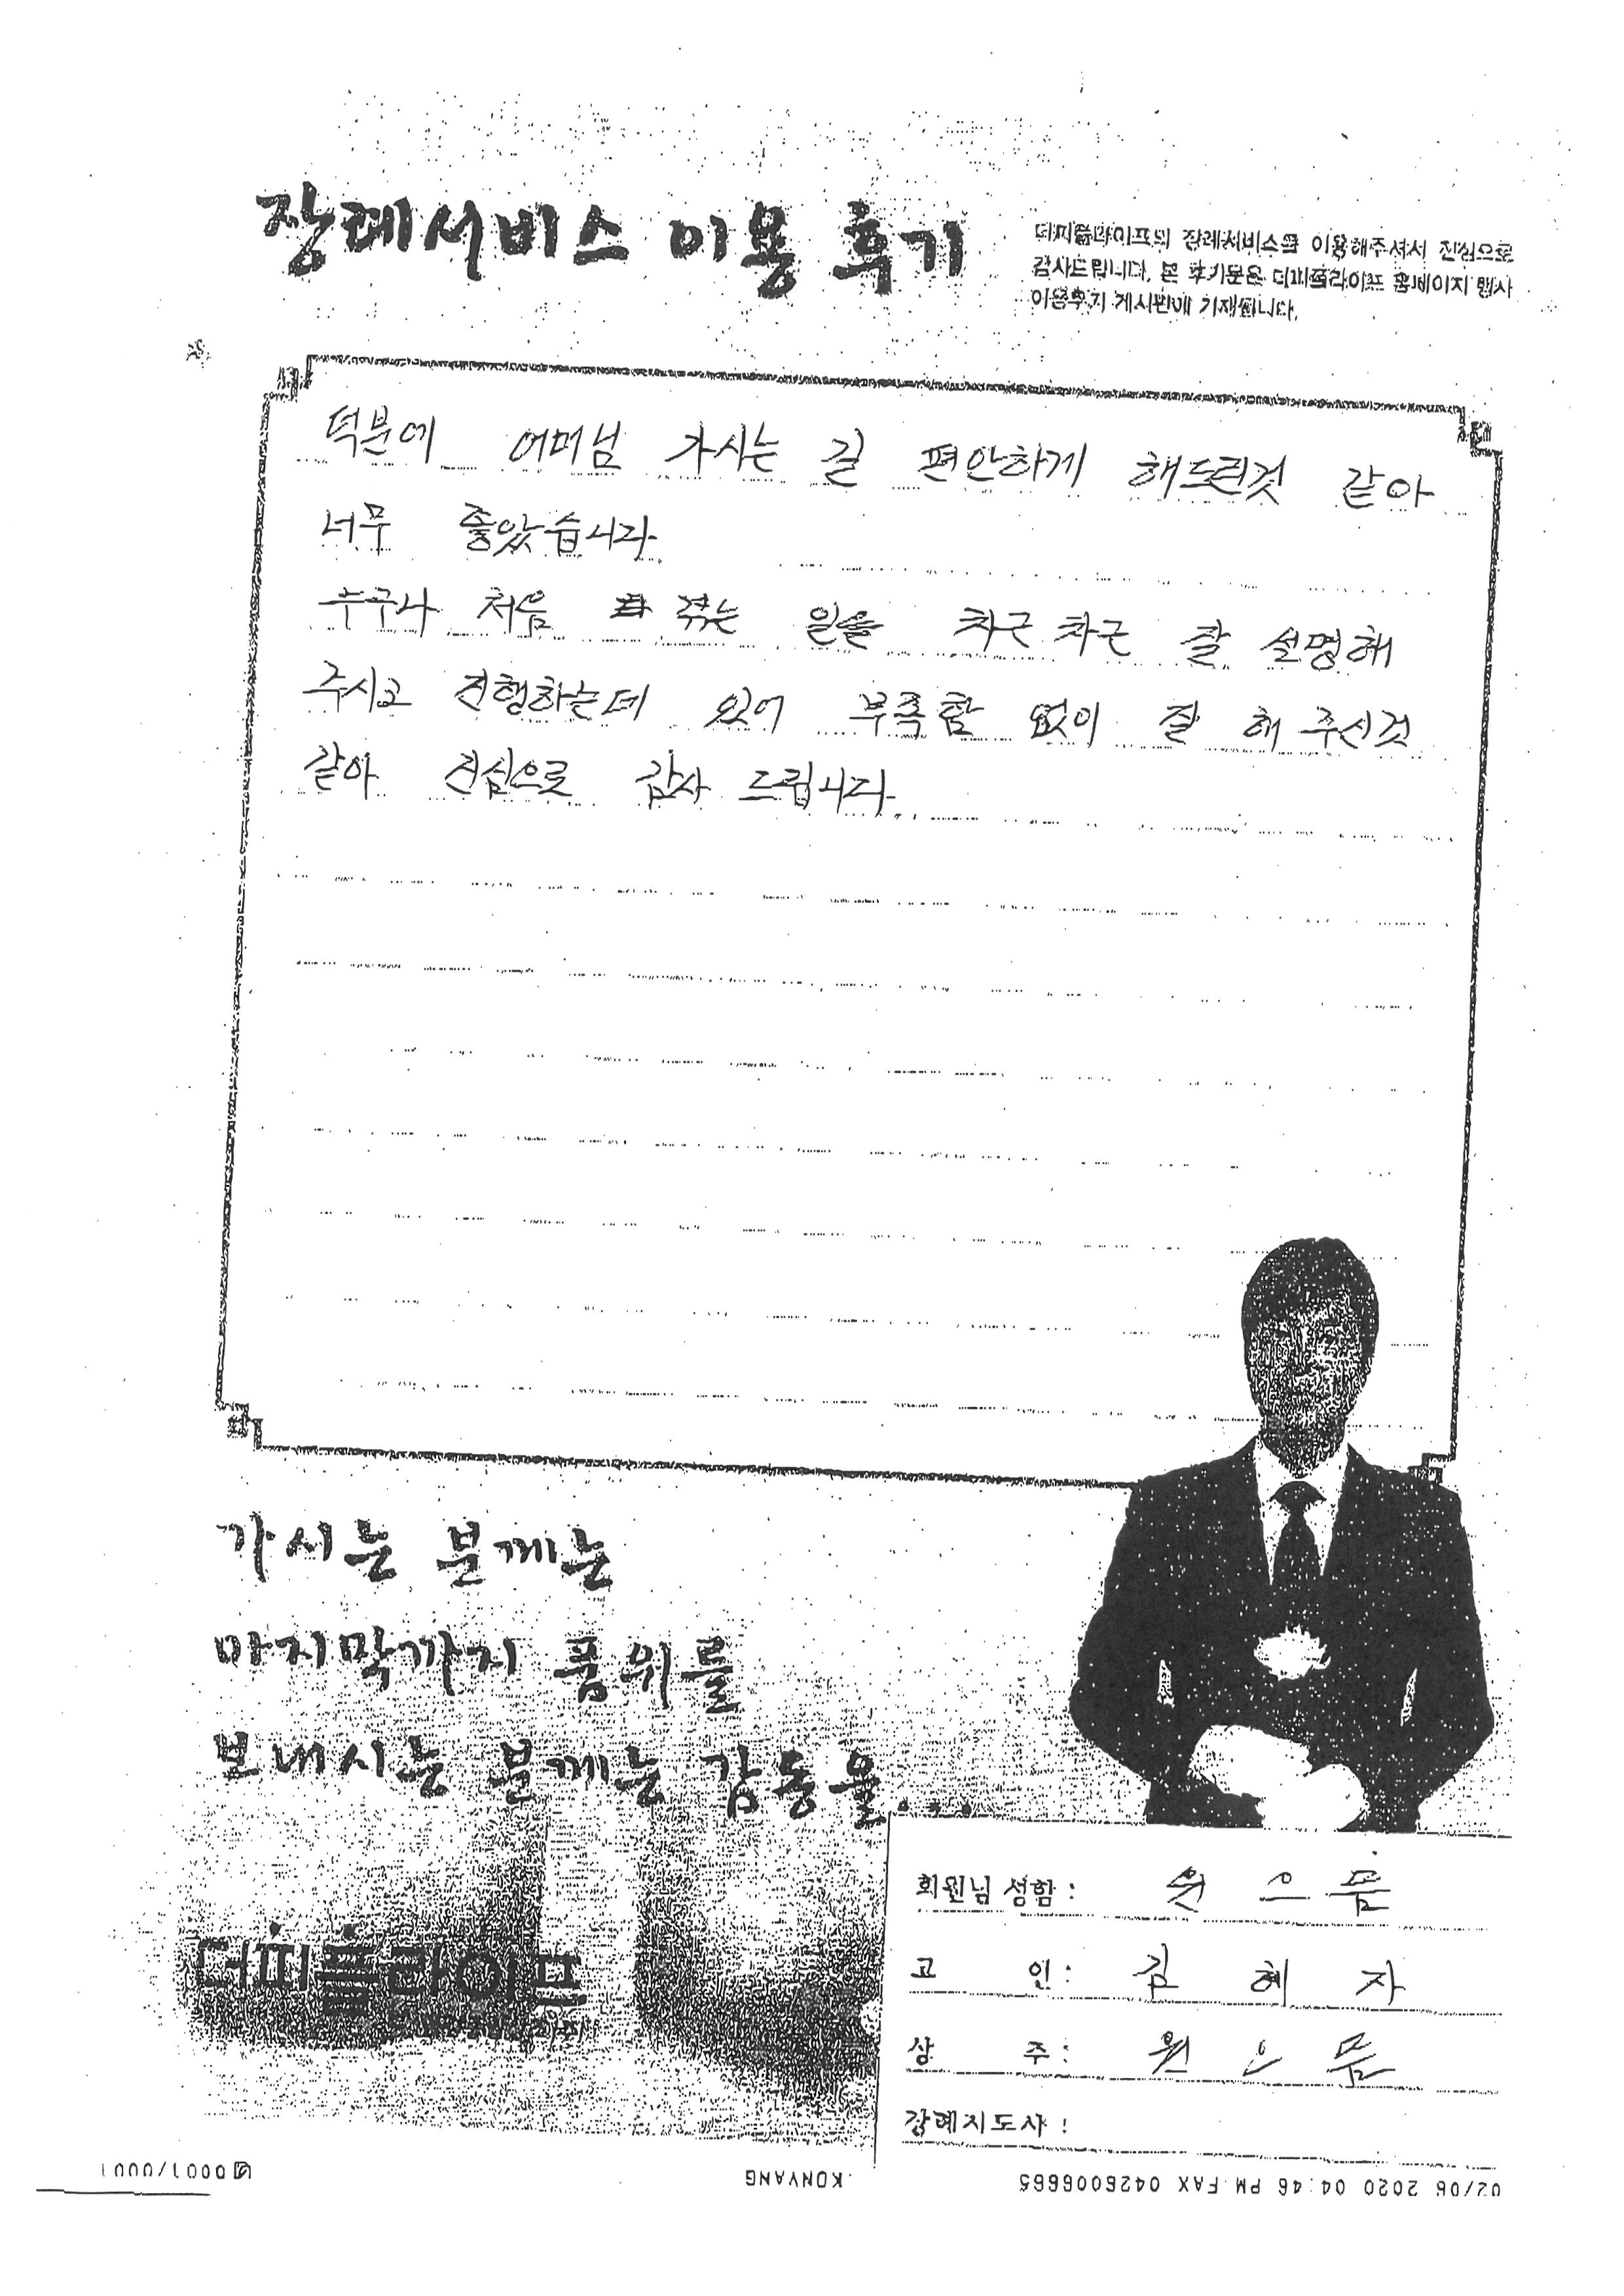 장례서비스 이용 후기
더피플라이프의 장례서비스를 이용해주셔서 진심으로
감사드립니다. 본 후기문은 더피플라이프 홈페이지 행사
이용후기 게시판에 기재됩니다.
덕분에 어머님 가시는 길 편안하게 해드린것 같아
너무 좋았습니다.
누구나 처음 겪는 일을 차근 차근 잘 설명해
주시고 진행하는데 있어 부족함 없이 잘 해 주신것
같아 진심으로 감사 드립니다.
가시는 분께는
마지막까지 품위를
보내시는 분께는 감동을...
더피플라이프
회원님 성함 :
고 인 : 김 혜 자
상 주 :
장례지도사 :
02/06 2020 04:46 PM FAX 0426006665
KONYANG
0001/0001